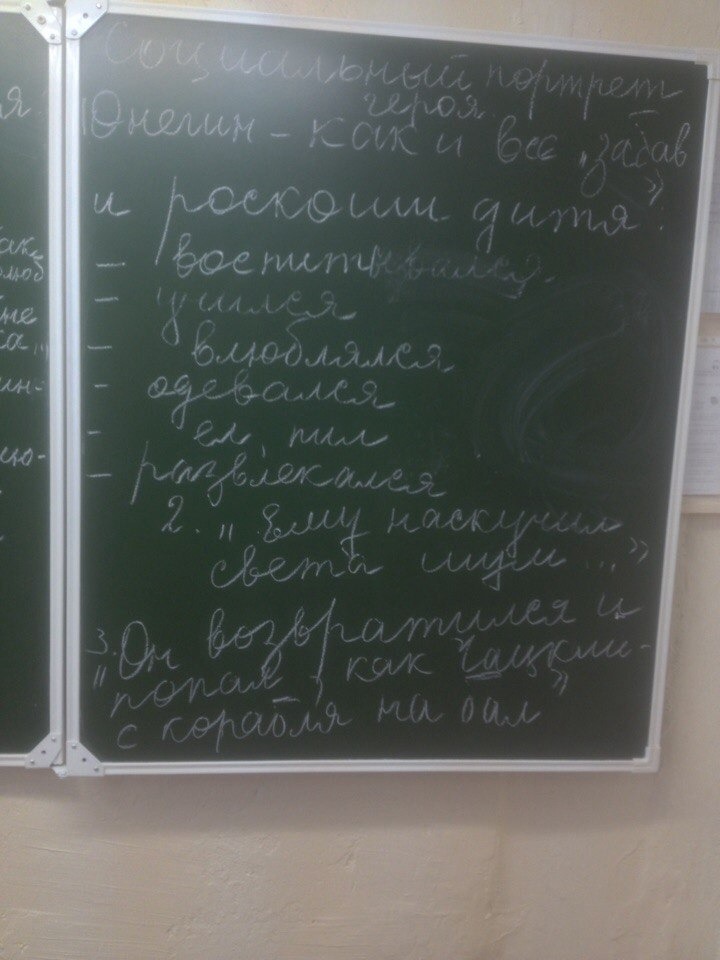 Социальный портрет
героя.
1 Онегин - как и все „забав
и роскоши дитя".
- воспитывался.
- учился
- влюблялся
- одевался
- ел, пил
- развлекался
2. „Ему наскучил
света шум..."
3. Он возвратился и
„попал, как Чацкий -
с корабля на бал"